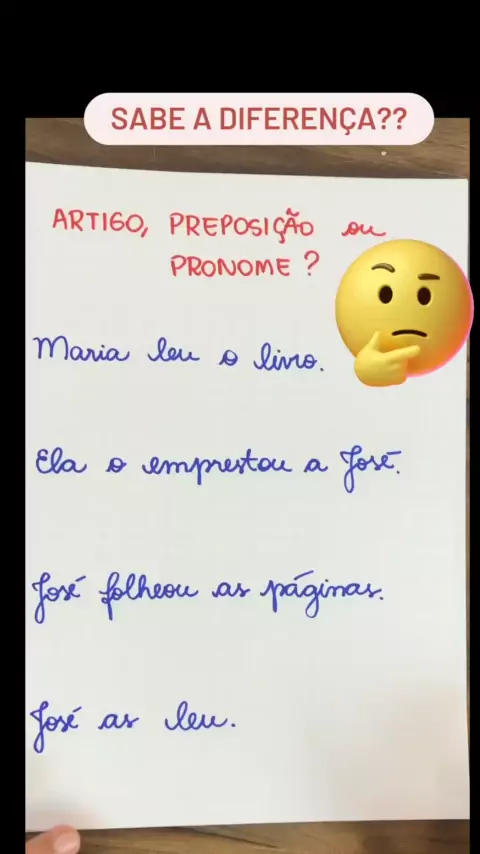 SABE A DIFERENÇA??
ARTIGO, PREPOSIÇÃO ou
PRONOME?
Maria leu o livro.
Ela o emprestou a José.
José folheou as páginas.
José as leu.